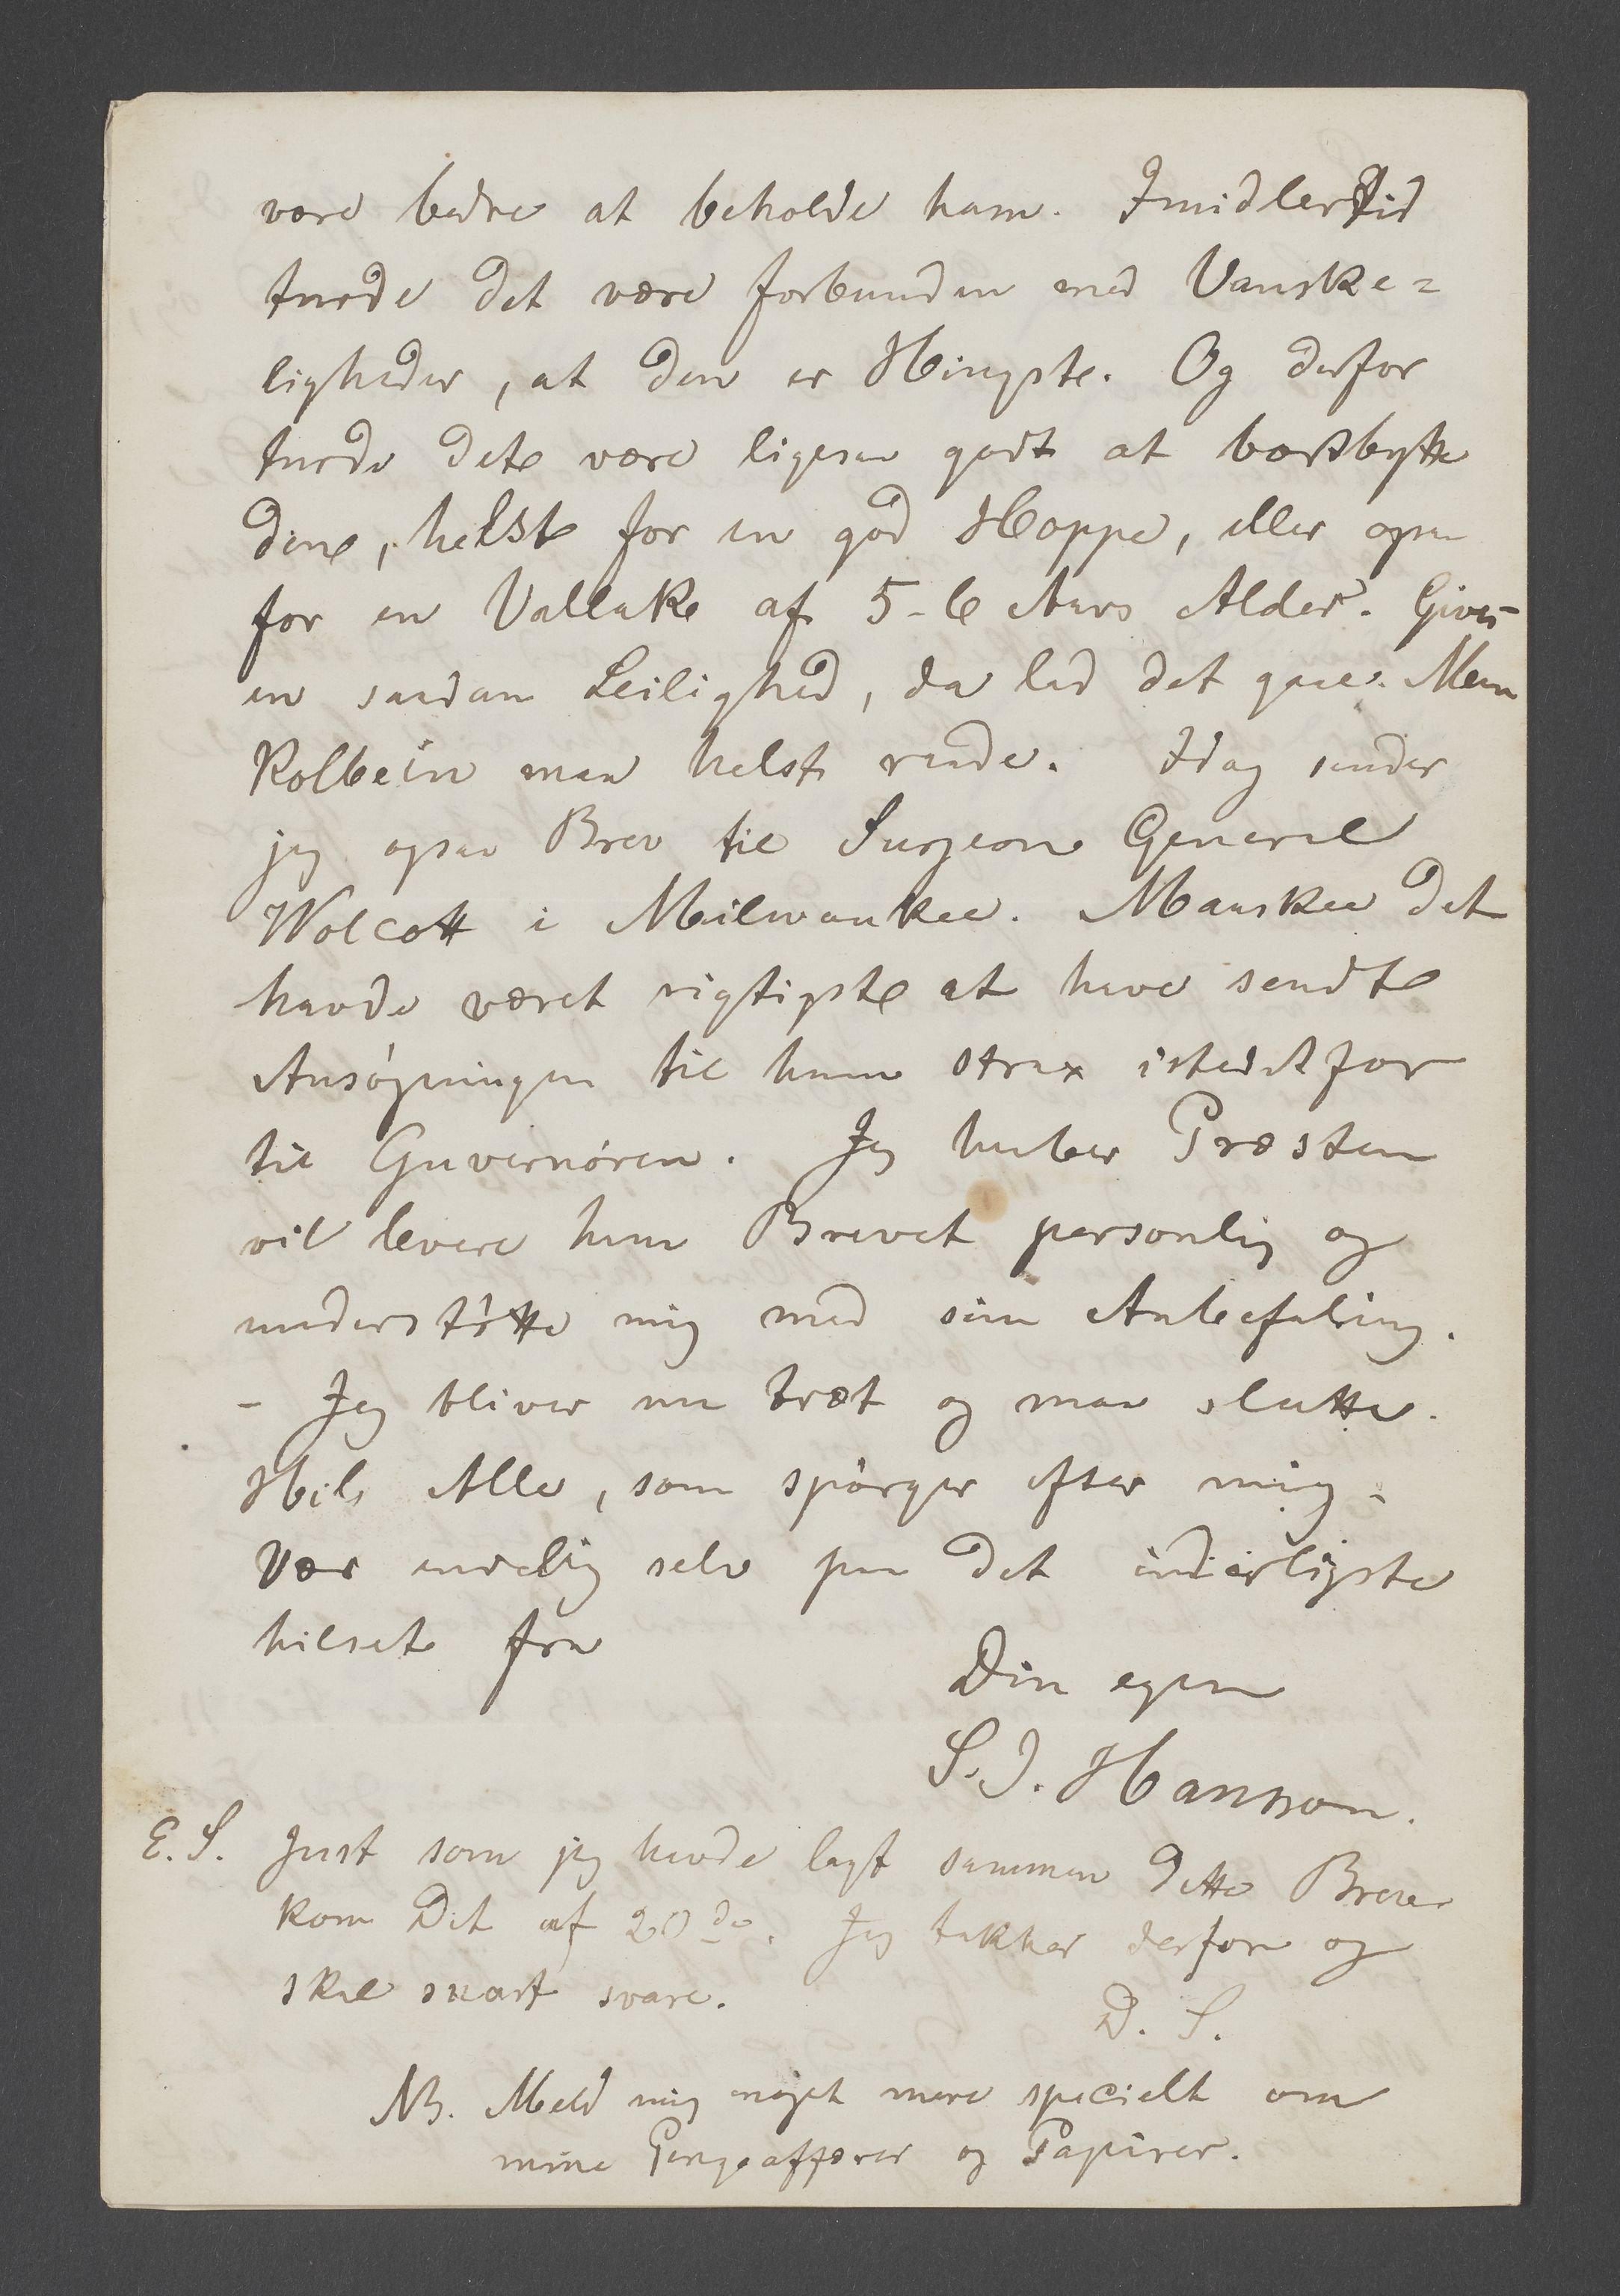 være bedre at beholde ham. Imidlertid
turde det være forbunden med Vanske=
ligheder, at den er Hingst. Og derfor
turde det være ligesaa godt at bortbytte
den, helst for en god Hoppe, eller ogsaa
for en Vallak af 5-6 Aars Alder. Gives
en saadan Leilighed, da lad det gaae. Men
Kolbein maa helst raade. Idag sender
jeg ogsaa Brev til Surgeon General
Wolcott i Milwaukee. Maaskee det
havde været rigtigst at have sendt
Ansøgningen til ham strax istedetfor
til Guvernøren. Jeg haaber Præsten
vil levere ham Brevet personlig og
understøtte mig med sin Anbefaling.
- Jeg bliver nu træt og maa slutte.
Hils Alle, som spørger efter mig.
Vær endelig selv paa det inderligste
hilset fra
Din egen
S. J. Hansson.
E. S. Just som jeg havde lagt sammen dette Brev
kom Dit af 20de. Jeg takker derfor og
skal snart svare.
D. S.
NB. Meld mig noget mere specielt om
mine Pengeaffærer og Papirer.